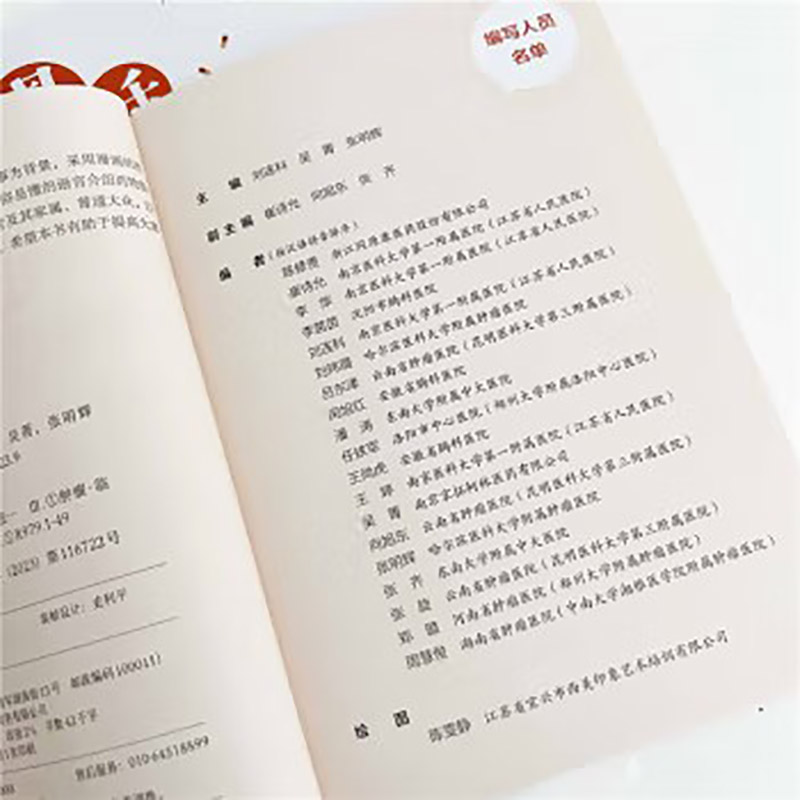 事为背景，采用漫画的
容易懂的语言介绍药物
者及其家属、普通大众，以
希望本书有助于提高大
吴菁，张明辉
①肿瘤-临
②R979.1-49
（2023）第116722号
装帧设计：史利平
邮政编码100011）
字数42千字
售后服务：010-64518899
编写人员
名单
主 编 刘连科 吴 菁 张明辉
副主编 崔诗允 向旭东 张 齐
编 者（按汉语拼音排序）
浙江同源康医药股份有限公司
崔诗允 南京医科大学第一附属医院（江苏省人民医院）
李 萍 南京医科大学第一附属医院（江苏省人民医院）
李茵茵 沈阳市胸科医院
刘连科 南京医科大学第一附属医院（江苏省人民医院）
哈尔滨医科大学附属肿瘤医院
吕东津 云南省肿瘤医院（昆明医科大学第三附属医院）
闵旭红 安徽省胸科医院
潘 涛 东南大学附属中大医院
洛阳市中心医院（郑州大学附属洛阳中心医院）
安徽省胸科医院
王 峄 南京医科大学第一附属医院（江苏省人民医院）
吴 菁 南京宏征柯林医药有限公司
向旭东 云南省肿瘤医院（昆明医科大学第三附属医院）
张明辉 哈尔滨医科大学附属肿瘤医院
张 齐 东南大学附属中大医院
张 旋 云南省肿瘤医院（昆明医科大学第三附属医院）
郑 盟 河南省肿瘤医院（郑州大学附属肿瘤医院）
周慧俊 湖南省肿瘤医院（中南大学湘雅医学院附属肿瘤医院）
绘 图 陈雯静 江苏省宜兴市西美印象艺术培训有限公司